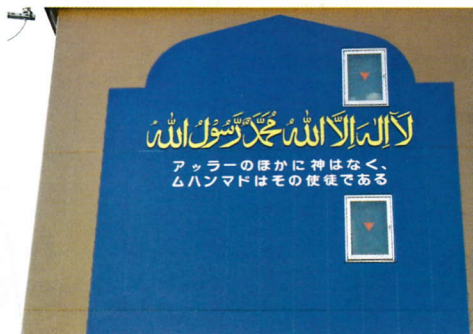 لَا إِلٰهَ إِلَّا اللهُ مُحَمَّدٌ رَّسُوْلُ اللهِ
アッラーのほかに神はなく、
ムハンマドはその使徒である